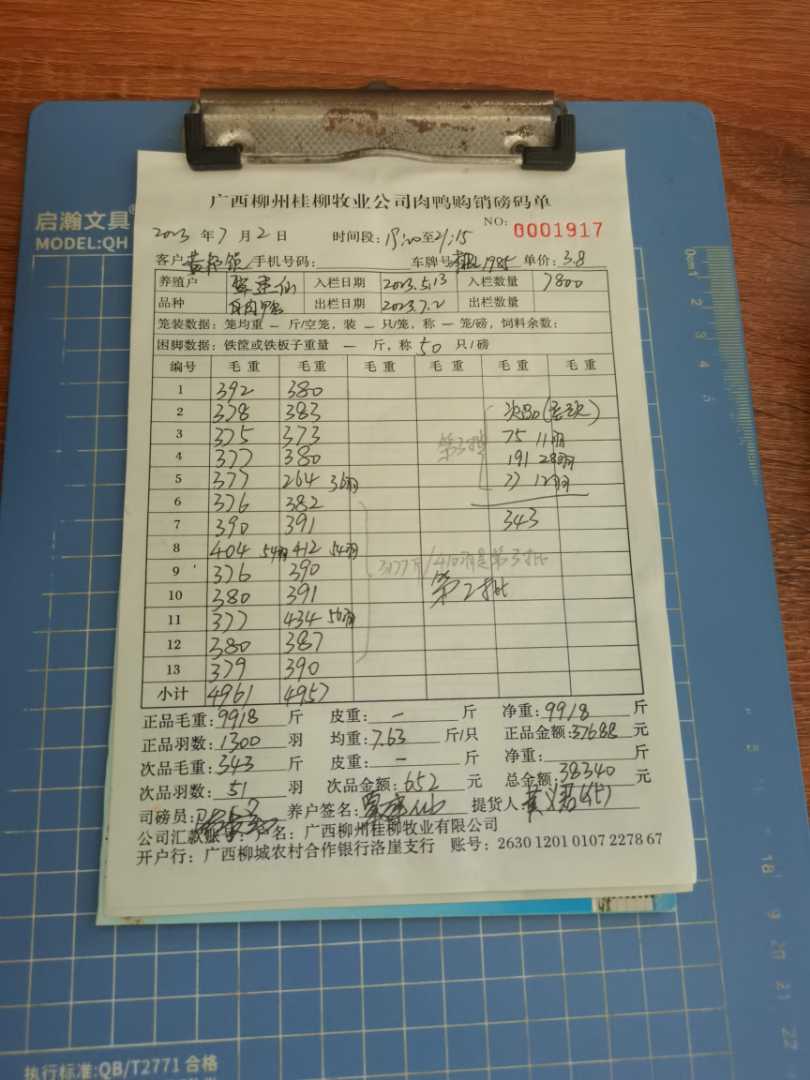 启瀚文具
MODEL:QH
广西柳州桂柳牧业公司肉鸭购销磅码单
NO: 0001917
2023 年 7 月 2 日 时间段: 至21:15
客户 /手机号码: 车牌号 1985 单价: 3.8
养殖户 入栏日期 2023.5.13 入栏数量 7800
品种 出栏日期 2023.7.2 出栏数量
笼装数据: 笼均重 — 斤/空笼, 装 — 只/笼, 称 — 笼/磅, 饲料余数:
困脚数据: 铁筐或铁板子重量 — 斤, 称 50 只/磅
编号 毛重 毛重 毛重 毛重 毛重 毛重
1 392 380
2 378 383 次品
3 375 373 75 11羽
4 377 380 191 28羽
5 377 264 36羽 77 12羽
6 376 382
7 390 391 343
8 404 54羽 412 54羽
9 376 390
10 380 391 第2批
11 377 434 56羽
12 380 387
13 379 390
小计 4961 4957
正品毛重: 9918 斤 皮重: — 斤 净重: 9918 斤
正品羽数: 1300 羽 均重: 7.63 斤/只 正品金额: 37688 元
次品毛重: 343 斤 皮重: — 斤 净重: 斤
次品羽数: 51 羽 次品金额: 652 元 总金额: 38340 元
司磅员: 养户签名: 提货人:
公司汇款账 名: 广西柳州桂柳牧业有限公司
开户行: 广西柳城农村合作银行洛崖支行 账号: 2630 1201 0107 2278 67
执行标准:QB/T2771 合格